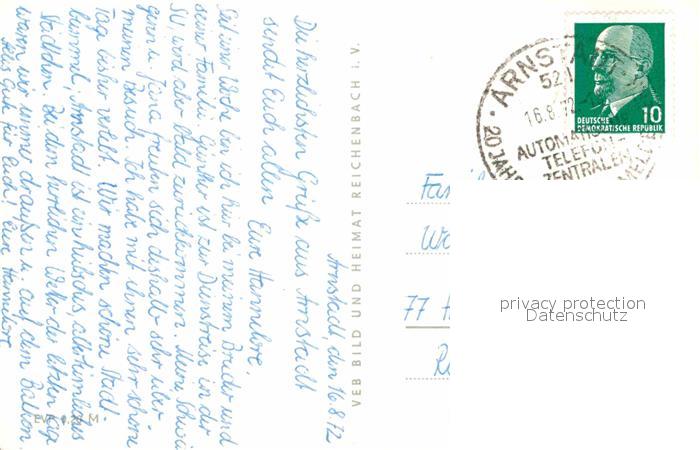 Arnstadt, den 16.8.72
Die herzlichsten Grüße aus Arnstadt
sendet Euch allen
Eure Hannelore.
Seit einer Woche bin ich hier bei meinem Bruder und
seiner Familie. Günther ist zur Dienstreise in der
SU, wird aber bald zurückkommen. Meine Schwä-
gerin u. Jana freuten sich deshalb sehr über
meinen Besuch. Ich habe mit ihnen sehr schöne
Tage bisher verlebt. Wir machten schöne Stadt-
bummel, Arnstadt ist ein hübsches, altertümliches
Städtchen. Zu dem herrlichen Wetter der letzten Tage
waren wir immer draußen u. auf dem Balkon.
Alles Gute für Euch! Eure Hannelore
VEB BILD UND HEIMAT REICHENBACH I. V.
EVP 0,20 M
ARNSTADT
521
16.8.72
AUTOMATIC
TELEFON-
ZENTRALEN
20 JAHRE
10
DEUTSCHE
DEMOKRATISCHE REPUBLIK
77
privacy protection
Datenschutz